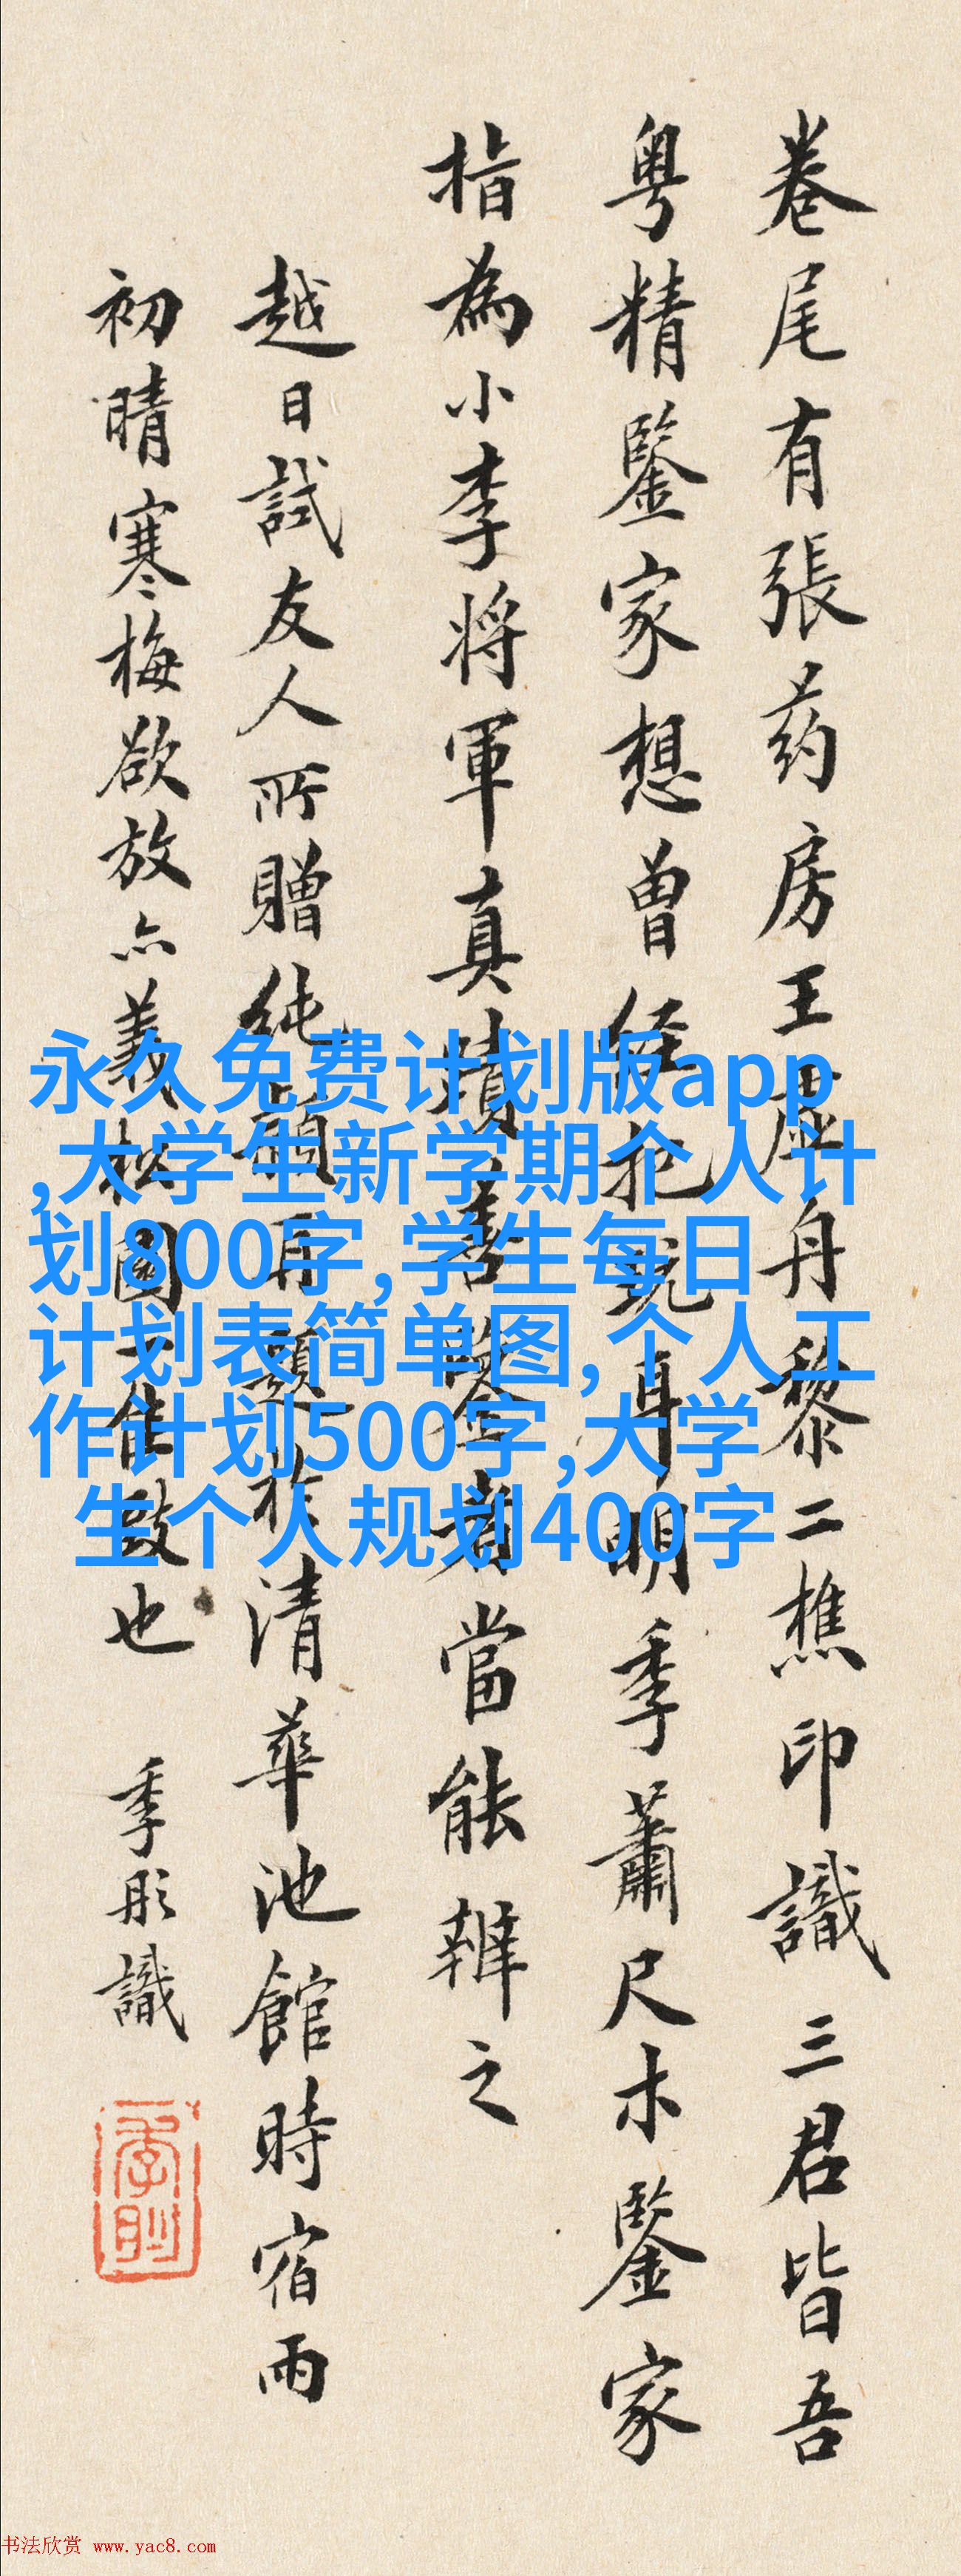 卷尾有張药房王虚舟黎二樵印識三君皆吾
粤精鑒家想曾经把玩耳明季蕭尺木鑒家
指為小李將軍真蹟善鑒者當能辨之
越日試友人所贈純穎再題於清華池館時宿雨
初晴寒梅欲放亦義松國佳致也
季彤識
永久免费计划版app
,大学生新学期个人计
划800字,学生每日
计划表简单图,个人工
作计划500字,大学
生个人规划400字
书法欣赏 www.yac8.com